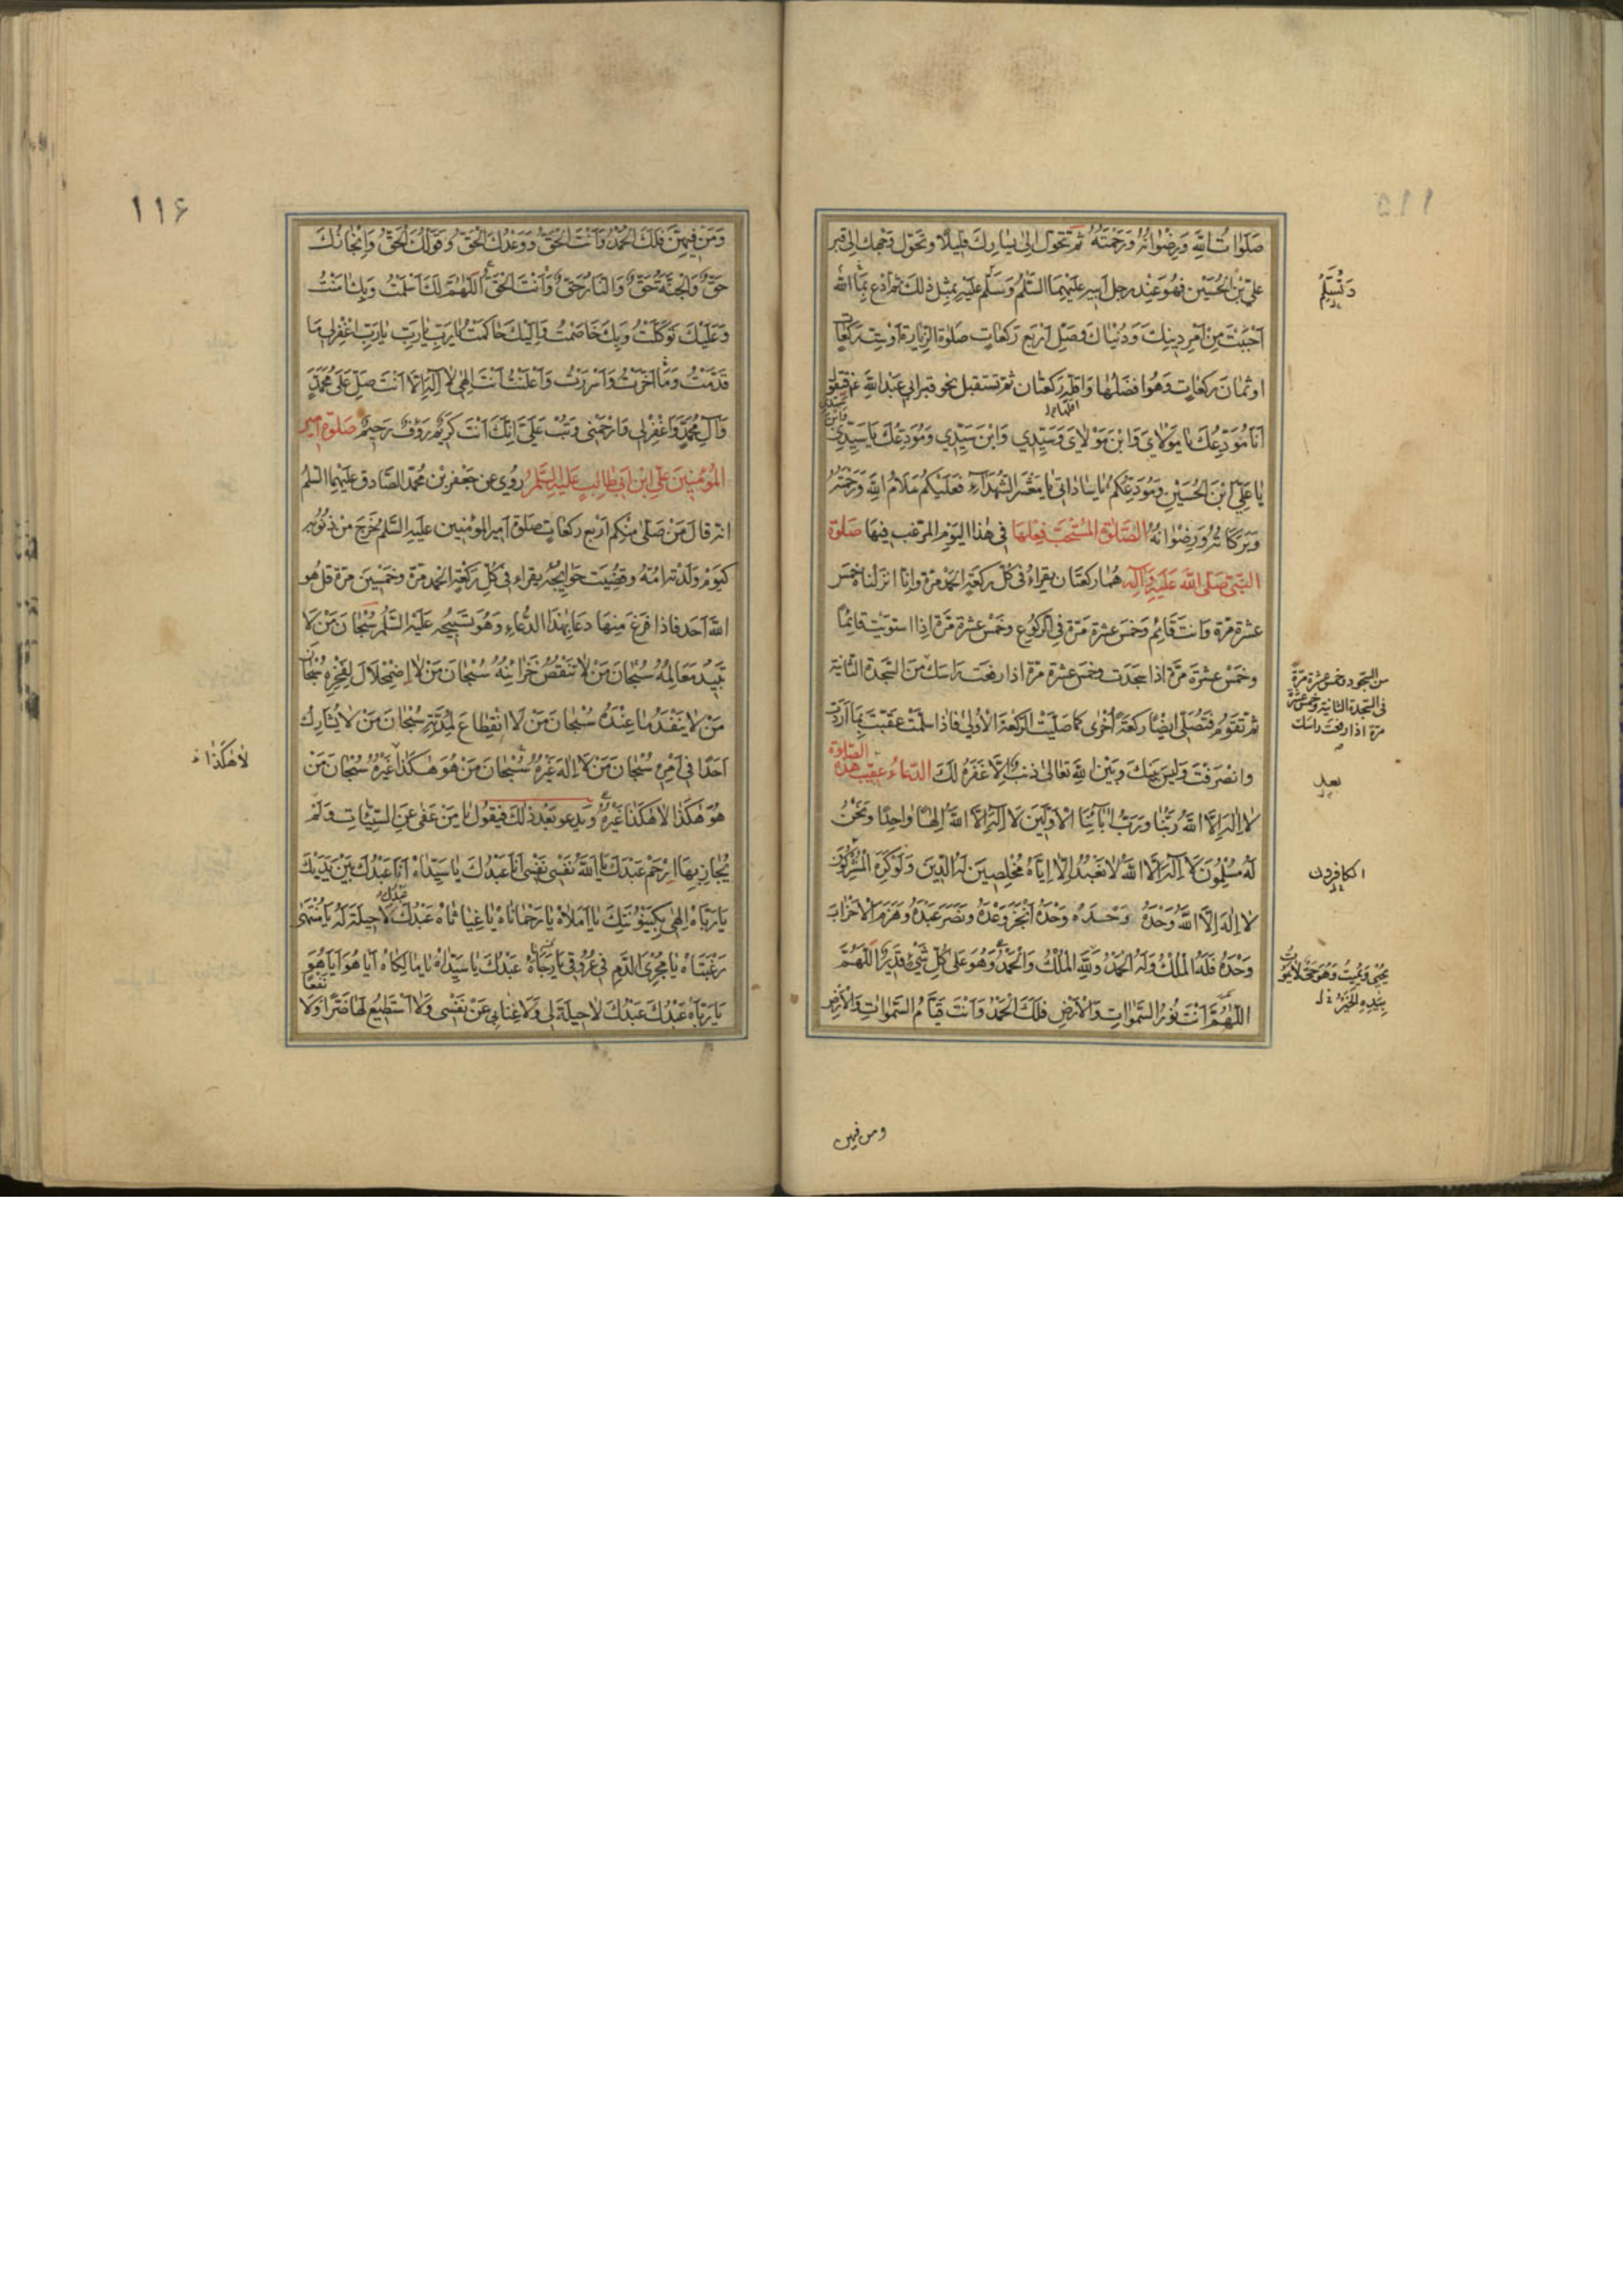 صَلَوَاتُ اللهِ وَرِضْوَانُهُ وَرَحْمَتُهُ ثم تحَوّل الى يسارك قليلًا وتحوّل وجهك الى قبر
علي بْن الحُسَيْن فهُوَ عِنْد رجل ابيهِ عَلَيْهِمَا السَّلمُ وَسَلّم عَليْهِ بمِثل ذلك ثم ادع بمَا الله
اَحْبَبْتَ مِنْ اَمْر دِينِكَ وَدُنْيَاكَ وَصَلّ اَرْبَع رَكعَاتٍ صَلوة الزيارة اَوْ سِتّ رَكعَاتٍ
او ثمَانَ ركعَاتٍ وَهُوَ افضَلُهَا وَاَقلّه رَكعَتَان ثم تستقبل نحو قبر ابي عَبْد الله ع فتقول
اَنَا مُوَدِّعُكَ يَا مَوْلَايَ وَابْنَ مَوْلَايَ وَسَيِّدِي وَابْنَ سَيِّدِي وَمُوَدِّعُكَ يَا سَيِّدِي
يَا عَلِيّ ابْنَ الحُسَيْنِ وَمُوَدِّعُكُمْ يَا سَادَاتِي يَا مَعْشَرَ الشُّهَدَآءِ فَعَلَيْكُمْ سَلَامُ اللهِ وَرَحْمَتُهُ
وَبَرَكَاتُهُ وَرِضْوَانُهُ الصَّلوة المُسْتَحَبّ فِعْلهَا في هٰذا اليَوْم المرغب فِيهَا صَلوة
النَّبِيّ صَلَّى اللهُ عَلَيْهِ وَآلِهِ هُمَا ركعَتَان يقراءُ في كلّ ركعَةٍ الحَمْد مَرّة وانّا انزلنا خمسَ
عشرة مَرّة وَانتَ قَائِم وَخمَس عشرة مَرّة في الركوع وخَمْس عشرة مَرّة اذا استوَيْت قائمًا
وخمَسْ عشرَة مَرّة اذا سَجَدت وخمسَ عشرة مرّة اذا رفعت رَاسَك مِنَ السَّجدة الثانية
ثم تقوم فتصَلّي ايضًا ركعَةً اُخْرٰى كما صَليْت الركعَة الاُولى فاذا سَلمّت عقبّت بمَا اَرَدْت
وانصَرفت وَليسَ بيَنك وَبَيْن اللهِ تعَالى ذنب اِلّا غَفَرَهُ لَكَ الدّعَاء عقيب هذه الصّلوة
لا اِلٰه اِلَّا اللهُ رَبُّنَا وَرَبُّ اٰبَآئِنَا الْاَوَّلِينَ لَا اِلٰهَ اِلَّا اللهُ اِلٰهًا وَاحِدًا وَنَحْنُ
لَهُ مُسْلِمُونَ لَا اِلٰهَ اِلَّا اللهُ لَا نَعْبُدُ اِلَّا اِيَّاهُ مُخْلِصِينَ لَهُ الدِّينَ وَلَوْ كَرِهَ الْمُشْرِكُونَ
لَا اِلٰهَ اِلَّا اللهُ وَحْدَهُ وَحْدَهُ وَحْدَهُ اَنْجَزَ وَعْدَهُ وَنَصَرَ عَبْدَهُ وَهَزَمَ الْاَحْزَابَ
وَحْدَهُ فَلَهُ الْمُلْكُ وَلَهُ الْحَمْدُ وَلِلهِ الْمُلْكُ وَالْحَمْدُ وَهُوَ عَلٰى كُلِّ شَيْءٍ قَدِيرٌ اَللّٰهُمَّ
اَللّٰهُمَّ اَنْتَ نُورُ السَّمٰوَاتِ وَالْاَرْضِ فَلَكَ الْحَمْدُ وَاَنْتَ قَيَّامُ السَّمٰوَاتِ وَالْاَرْضِ
وَتُسَلِّمُ
من السّجود وخمس عشرة مَرّة
في السّجدة الثانية وخمس عشرة
مَرّة اذا رفعت راسك
بعد
الكافرون
يُحْيِي وَيُمِيتُ وَهُوَ حَيٌّ لَا يَمُوتُ
بِيَدِهِ الْخَيْرُ
ومن فيهن
١١۵
١١۶
وَمَن فِيهِنَّ فَلَكَ الْحَمْدُ وَاَنْتَ الْحَقُّ وَوَعْدُكَ الْحَقُّ وَقَوْلُكَ الْحَقُّ وَاِنْجَازُكَ
حَقٌّ وَالْجَنَّةُ حَقٌّ وَالنَّارُ حَقٌّ وَاَنْتَ الْحَقُّ اَللّٰهُمَّ لَكَ اَسْلَمْتُ وَبِكَ اٰمَنْتُ
وَعَلَيْكَ تَوَكَّلْتُ وَبِكَ خَاصَمْتُ وَاِلَيْكَ حَاكَمْتُ يَا رَبِّ يَا رَبِّ يَا رَبِّ اغْفِرْ لِي مَا
قَدَّمْتُ وَمَا اَخَّرْتُ وَاَسْرَرْتُ وَاَعْلَنْتُ اَنْتَ اِلٰهِي لَا اِلٰهَ اِلَّا اَنْتَ صَلِّ عَلٰى مُحَمَّدٍ
وَآلِ مُحَمَّدٍ وَاغْفِرْ لِي وَارْحَمْنِي وَتُبْ عَلَيَّ اِنَّكَ اَنْتَ كَرِيمٌ رَؤُفٌ رَحِيمٌ صَلوة امير
المُؤمنِينَ عَلي ابْن اَبي طَالِبٍ عَليْهِ السَّلمُ رُوي عن جَعْفَر بْن مُحمّد الصَّادق عَلَيْهِمَا السّلمُ
انه قالَ مَنْ صَلىّ منكم اَرْبع ركعَاتٍ صَلوة امير المؤمنِين عليهِ السَّلم خَرجَ مِنْ ذنُوبِه
كيَوْم وَلَدَته اُمّهُ وقضيَت حَوَائِجُهُ يقراء في كلّ رَكعَةٍ الحمد مَرّة وخمَسْينَ مَرّة قل هُو
اللهُ اَحَد فاذا فرَغَ مِنهَا دعَا بهٰذا الدُّعَاءِ وَهُوَ تسبيحه عَليْه السَّلمُ سُبْحَانَ مَنْ لَا
تَبِيدُ مَعَالِمُهُ سُبْحَانَ مَنْ لَا تَنْقُصُ خَزَائِنُهُ سُبْحَانَ مَنْ لَا اضْمِحْلَالَ لِفَخْرِهِ سُبْحَانَ
مَنْ لَا يَنْفَدُ مَا عِنْدَهُ سُبْحَانَ مَنْ لَا انْقِطَاعَ لِمُدَّتِهِ سُبْحَانَ مَنْ لَا يُشَارِكُ
اَحَدًا فِي اَمْرِهِ سُبْحَانَ مَنْ لَا اِلٰهَ غَيْرُهُ سُبْحَانَ مَنْ هُوَ هٰكَذَا غَيْرُهُ سُبْحَانَ مَنْ
هُوَ هٰكَذَا لَا هٰكَذَا غَيْرُهُ وَيَدعو بَعْد ذلكَ فيقُول يَا مَنْ عَفٰى عَنِ السَّيِّئَاتِ وَلَمْ
يُجَازِ بِهَا اِرْحَمْ عَبْدَكَ يَا اَللهُ نَفْسِي نَفْسِي اَنَا عَبْدُكَ يَا سَيِّدَاهُ اَنَا عَبْدُكَ بَيْنَ يَدَيْكَ
يَا رَبَّاهُ اِلٰهِي بِكَيْنُونَتِكَ يَا اَمَلَاهُ يَا رَحْمَانَاهُ يَا غِيَاثَاهُ عَبْدُكَ عَبْدُكَ لَا حِيلَةَ لَهُ يَا مُنْتَهٰى
رَغْبَتَاهُ يَا مُجْرِيَ الدَّمِ فِي عُرُوقِي يَا رَجَآهُ عَبْدَكَ يَا سَيِّدَاهُ يَا مَالِكَاهُ اَيَا هُوَ اَيَا هُوَ
يَا رَبَّاهُ عَبْدُكَ عَبْدُكَ لَا حِيلَةَ لِي وَلَا غِنَا بِي عَنْ نَفْسِي وَلَا اَسْتَطِيعُ لَهَا ضَرًّا وَلَا نَفْعًا
لَا هٰكَذَا